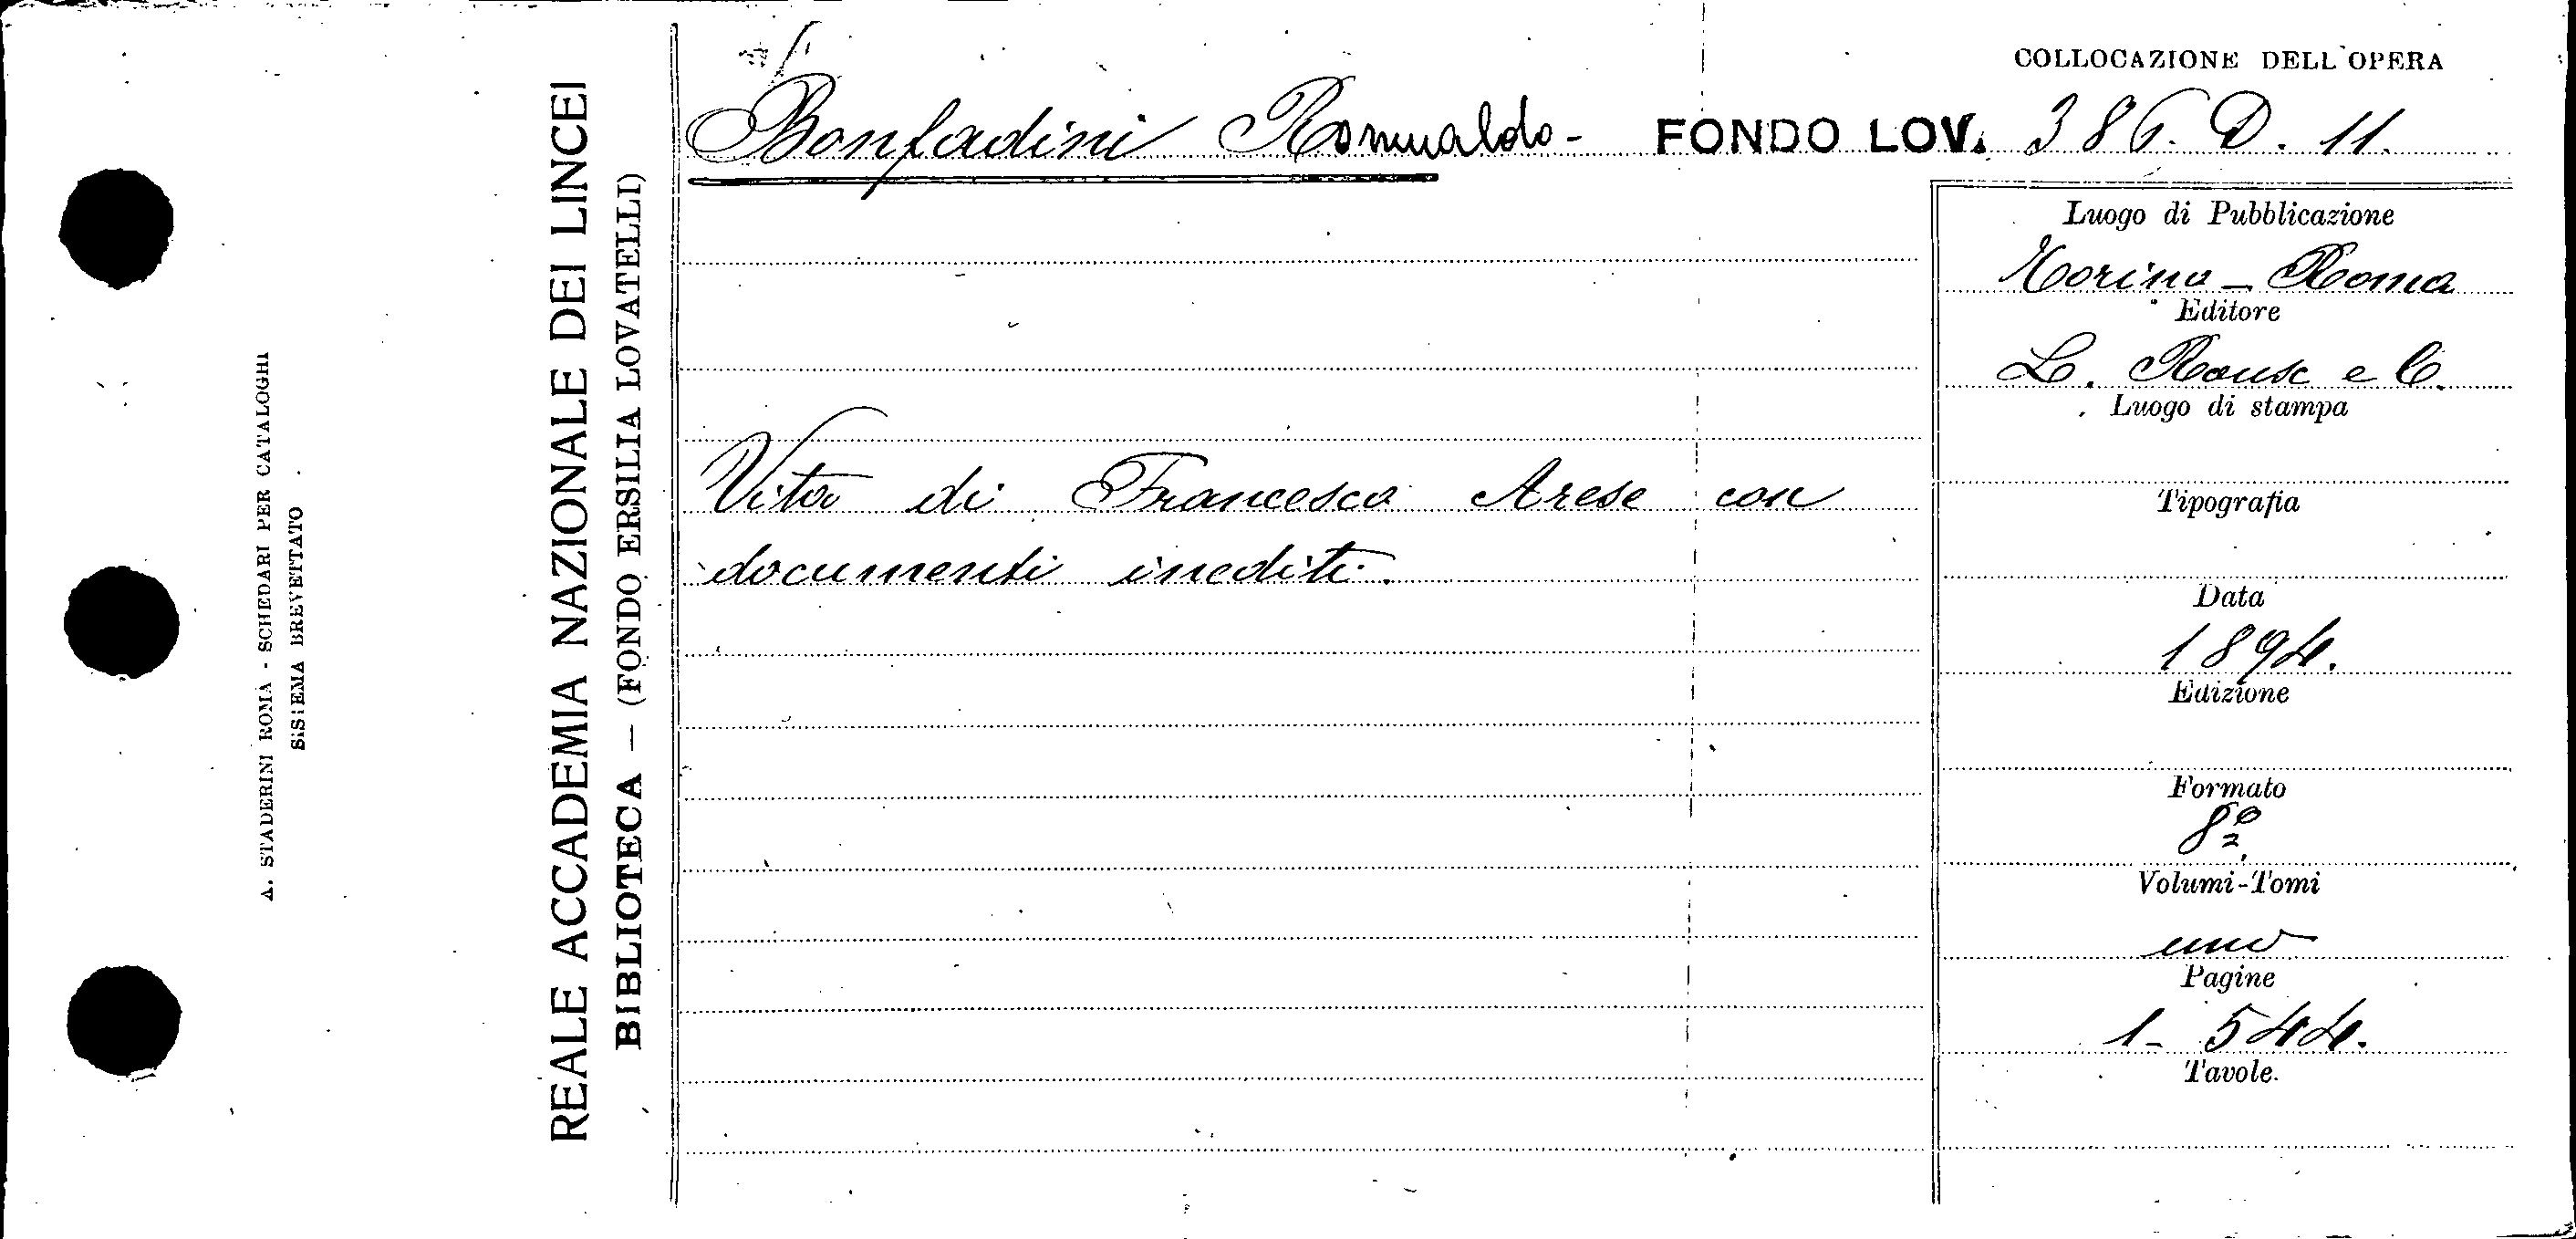 COLLOCAZIONE DELL'OPERA
Bonfadini Romualdo - FONDO LOV. 386. D. 11.
Vita di Francesco Arese con
documenti inediti.
Luogo di Pubblicazione
Torino - Roma
Editore
L. Roux e C.
Luogo di stampa
Tipografia
Data
1894.
Edizione
Formato
8º
Volumi-Tomi
uno
Pagine
1- 544.
Tavole.
REALE ACCADEMIA NAZIONALE DEI LINCEI
BIBLIOTECA — (FONDO ERSILIA LOVATELLI)
A. STADERINI ROMA - SCHEDARI PER CATALOGHI
SISTEMA BREVETTATO